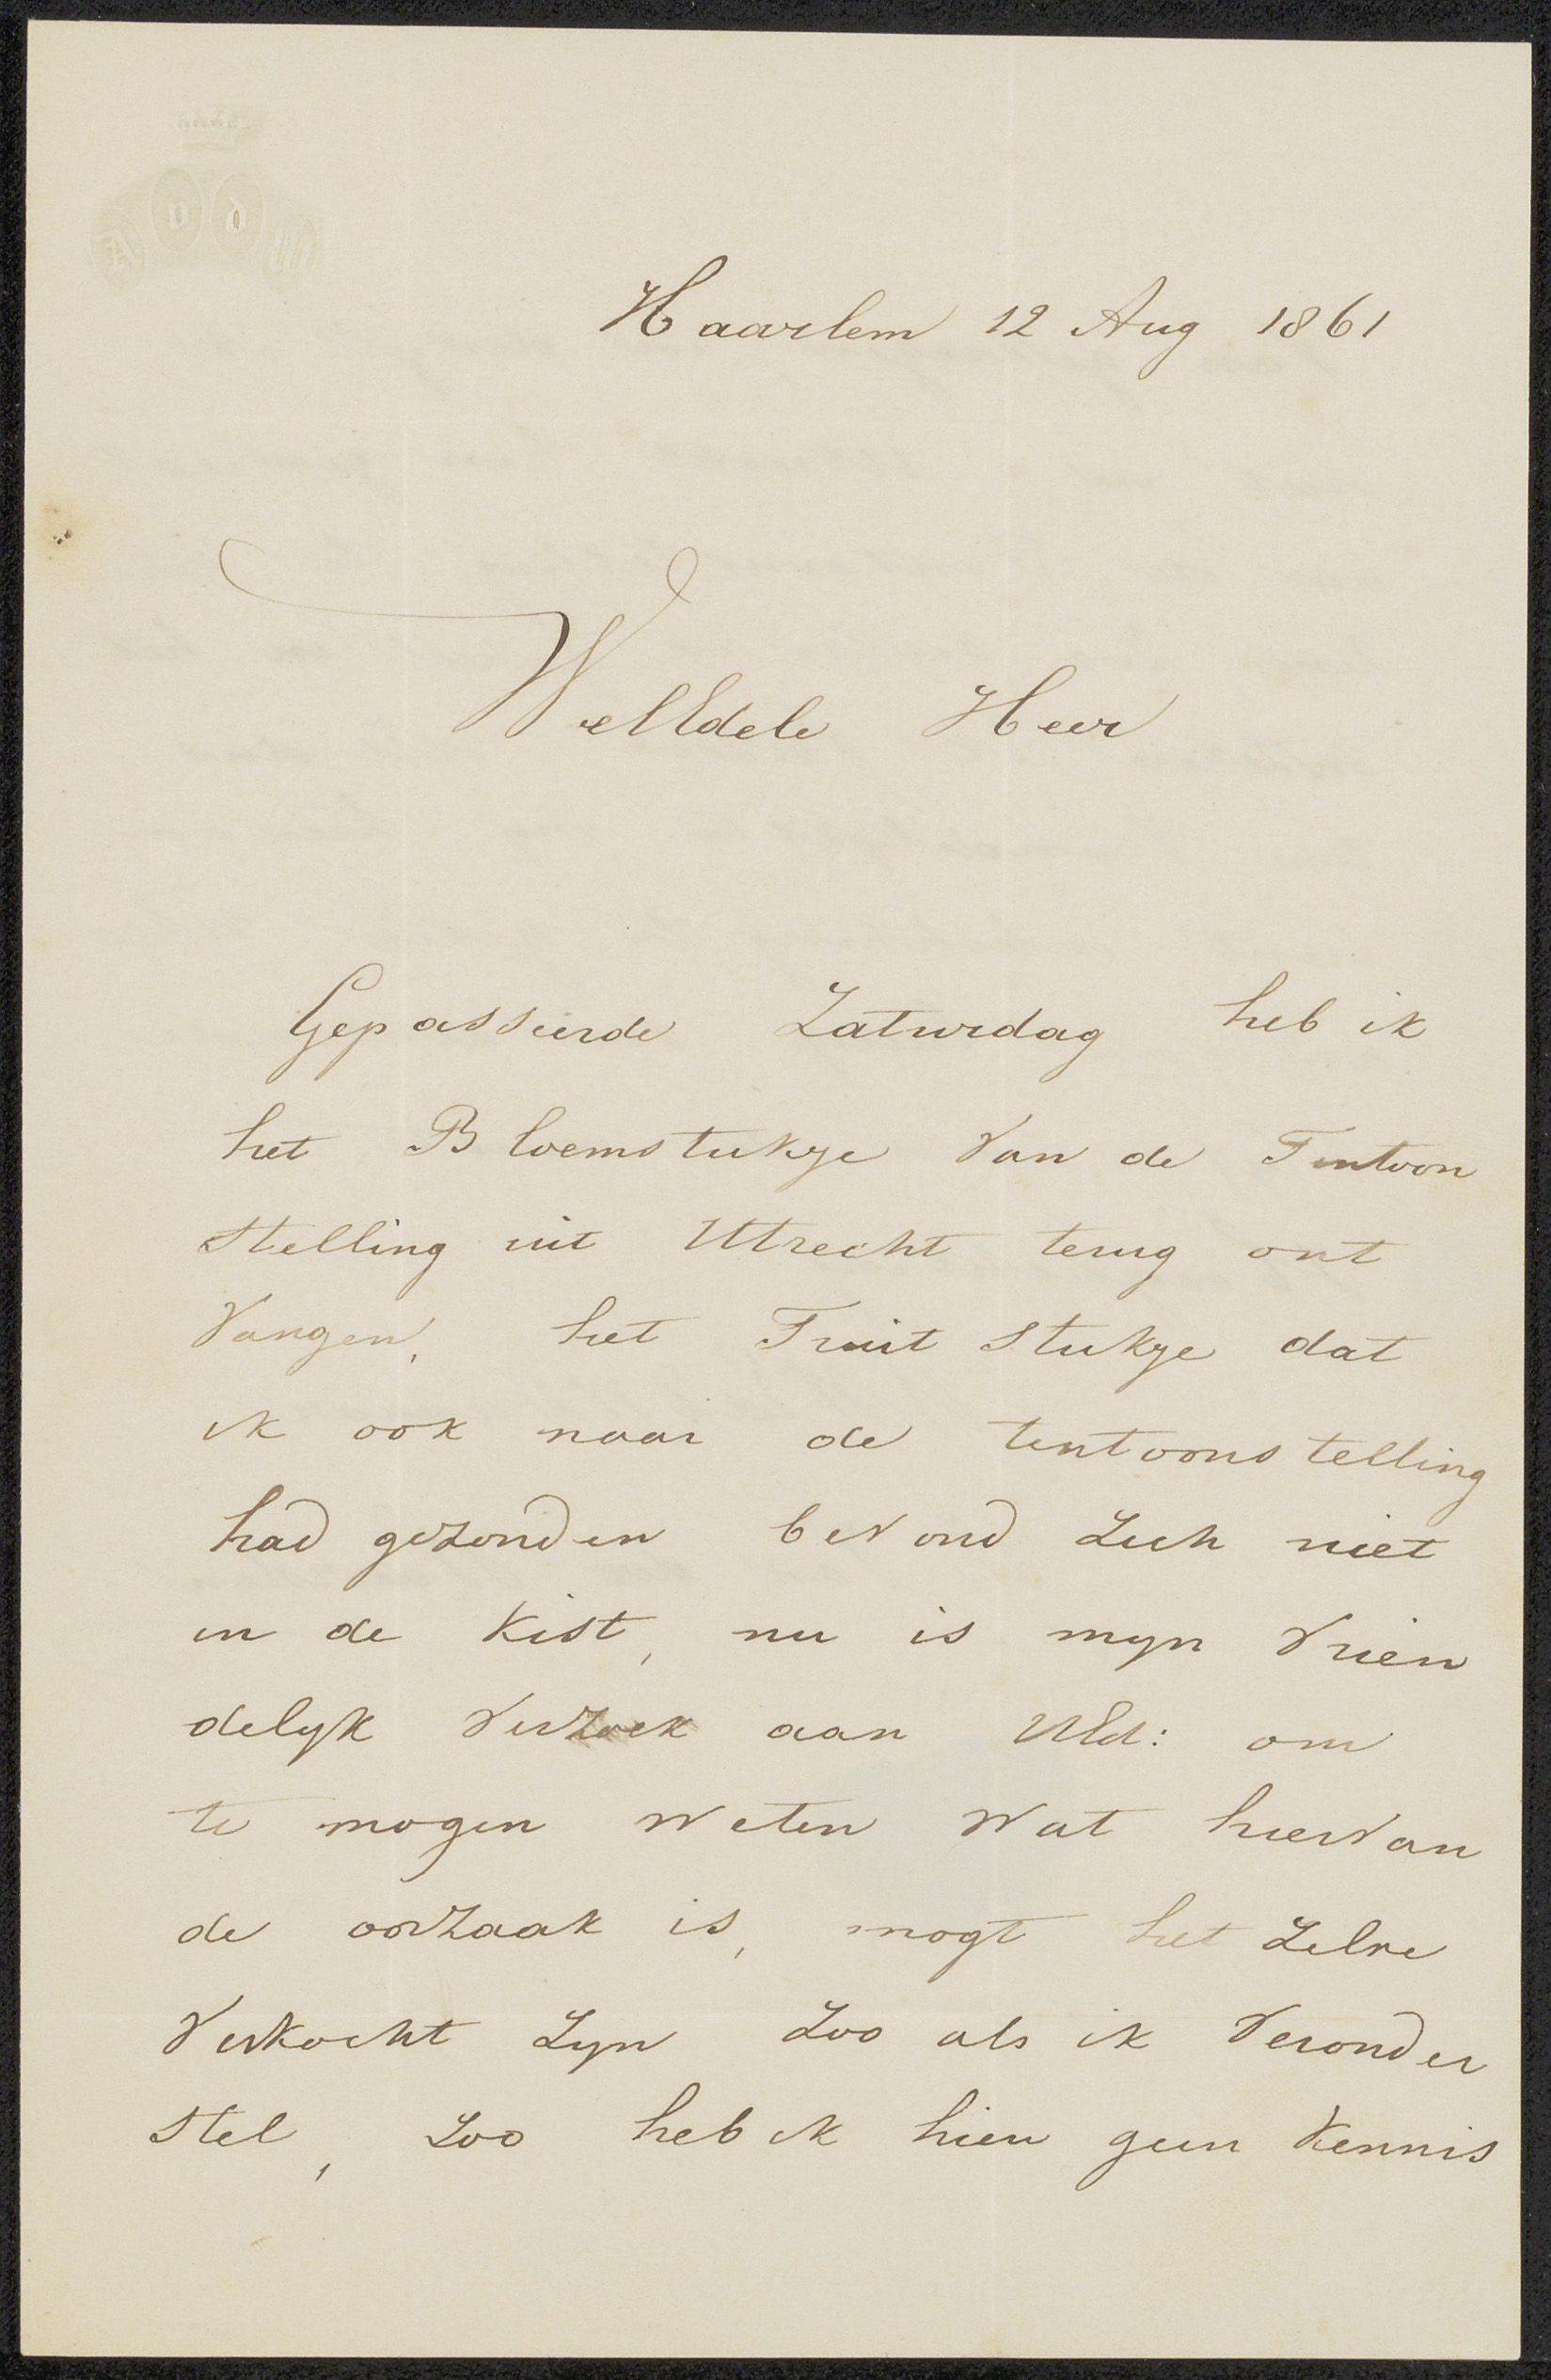 Haarlem 12 Aug 1861
WelEdele Heer
Gepasseerde Zaturdag heb ik
het Bloemstukje van de Tentoon
stelling uit Utrecht terug ont
vangen, het Fruit stukje dat
ik ook naar de tentoonstelling
had gezonden bevond zich niet
in de kist, nu is myn vrien
delyk verzoek aan UEd: om
te mogen weten wat hiervan
de oorzaak is, mogt het zelve
verkocht zyn zoo als ik veronder
stel, zoo heb ik hier geen kennis